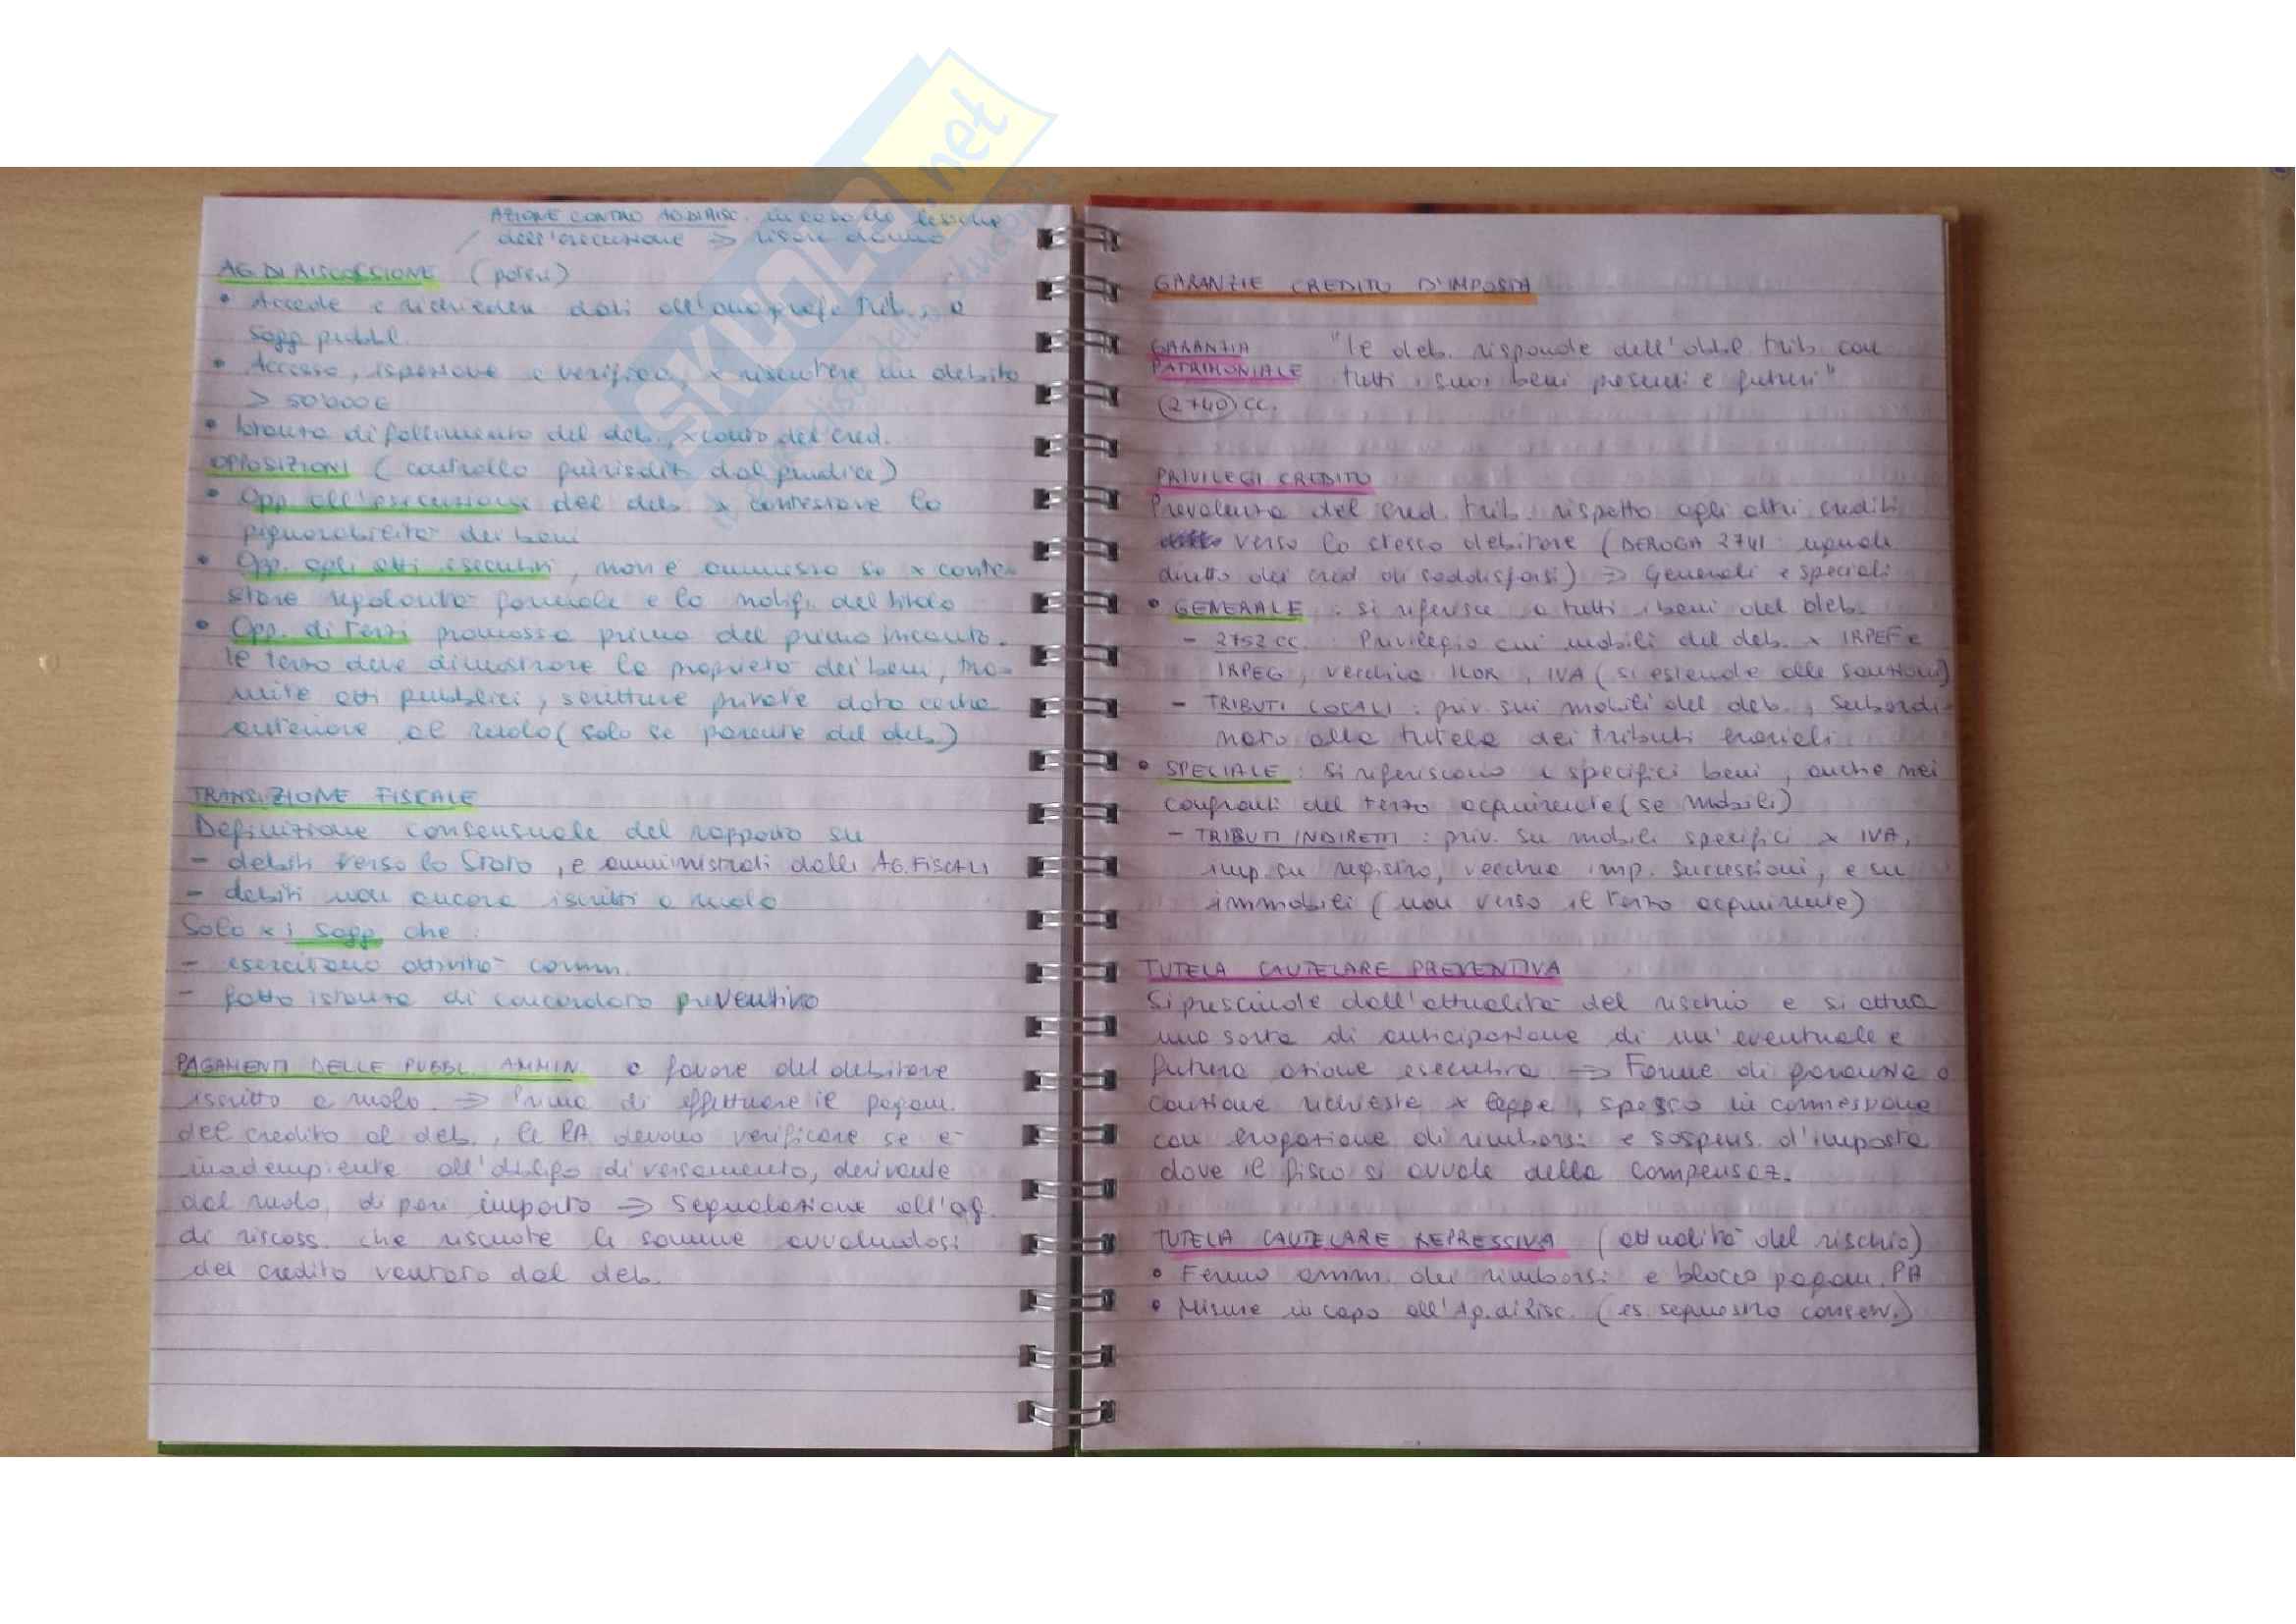 AZIONE CONTRO AG DI RISC. in caso di lesione
dell'esecuzione => risarc danno
AG. DI RISCOSSIONE (poteri)
• Accede e richiedere dati all'anagrafe trib., a
sogg pubbl.
• Accesso, ispezione e verifica, x riscuotere un debito
> 50'000 €
• Istanza di fallimento del deb., x conto del cred.
OPPOSIZIONI (controllo giurisdiz dal giudice)
• Opp all'esecuzione del deb x contestare la
pignorabilità dei beni
• Opp. agli atti esecutivi, non è ammessa se x conte-
stare regolarità formale e la notif. del titolo
• Opp. di terzi promossa prima del primo incanto.
Il terzo deve dimostrare la proprietà dei beni, tra-
mite atti pubblici, scritture private data certa
anteriore al ruolo (solo se parente del deb)
TRANSIZIONE FISCALE
Definizione consensuale del rapporto su
- debiti verso lo Stato, e amministrati dalle AG. FISCALI
- debiti non ancora iscritti a ruolo
Solo x i sogg che :
- esercitano attività comm.
- fatto istanza di concordato preventivo
PAGAMENTI DELLE PUBBL. AMMIN. a favore del debitore
iscritto a ruolo => Prima di effettuare il pagam.
del credito al deb., le PA devono verificare se è
inadempiente all'obbligo di versamento, derivante
dal ruolo, di pari importo => Segnalazione all'ag.
di riscoss. che riscuote le somme avvalendosi
del credito vantato dal deb.
GARANZIE CREDITO D'IMPOSTA
GARANZIA "Il deb. risponde dell'obbl trib con
PATRIMONIALE tutti i suoi beni presenti e futuri"
(2740) cc.
PRIVILEGI CREDITO
Prevalenza del cred. trib. rispetto agli altri crediti
verso lo stesso debitore (DEROGA 2741: uguali
diritto dei cred di soddisfarsi) => Generali e speciali
• GENERALE : si riferisce a tutti i beni del deb.
- 2752 cc. : Privilegio sui mobili del deb. x IRPEF e
IRPEG, vecchia ILOR, IVA (si estende alle sanzioni)
- TRIBUTI LOCALI : priv. sui mobili del deb., subordi-
nato alla tutela dei tributi erariali
• SPECIALE : si riferiscono a specifici beni, anche nei
confronti del terzo acquirente (se mobili)
- TRIBUTI INDIRETTI : priv. su mobili specifici x IVA,
imp. su registro, vecchia imp. successioni, e su
immobili (non verso il terzo acquirente)
TUTELA CAUTELARE PREVENTIVA
Si prescinde dall'attualità del rischio e si attua
una sorta di anticipazione di un'eventuale e
futura azione esecutiva => Forme di garanzia o
cauzione richieste x legge, spesso in connessione
con erogazione di rimborsi e sospens. d'imposta
dove il fisco si avvale della compensaz.
TUTELA CAUTELARE REPRESSIVA (attualità del rischio)
• Fermo amm. dei rimborsi e blocco pagam. PA
• Misure in capo all'Ag. di Risc. (es sequestro conserv.)
SKUOLA.net